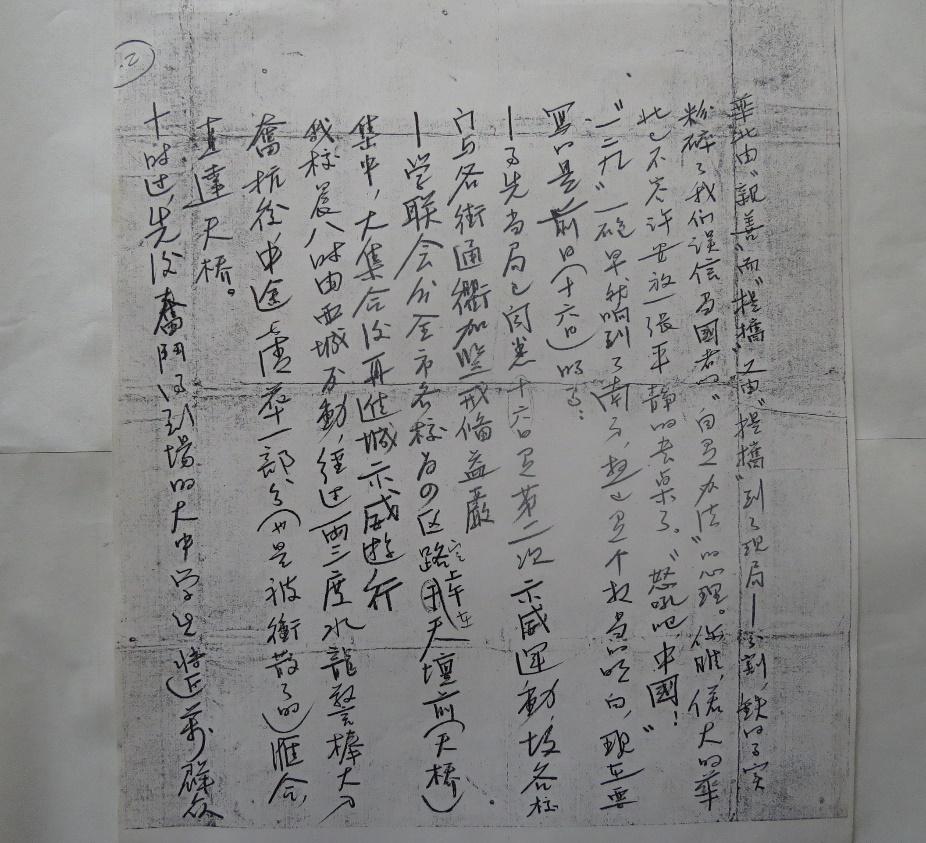 华北由“親善”而“提攜”又由“提攜”到了现局—分割,鉄的事实
粉碎了我们误信当國者的“自有办法”的心理。你瞧,偌大的華
北已不容许安放一张平静的书桌了。“怒吼吧,中國!”
“一二九”一砲早就响到了南方,想必有个相当的明白,现在要
写的是前日(十六日)的事:
—事先当局已闻悉十六日有第二次示威運動,故各校
门与各街通衢加紧戒備益嚴
—学联会分全市各校为の区路定上午在天壇前(天橋)
集中,大集合後再進城示威游行
我校晨八时由西城发動,经过两三度水龍警棒大刀
奮抗後,中途虚牵一部分(也是被衝散了的)匯合,
直達天橋。
十时过,先後奮鬥得到場的大中学生将近萬,群众
2